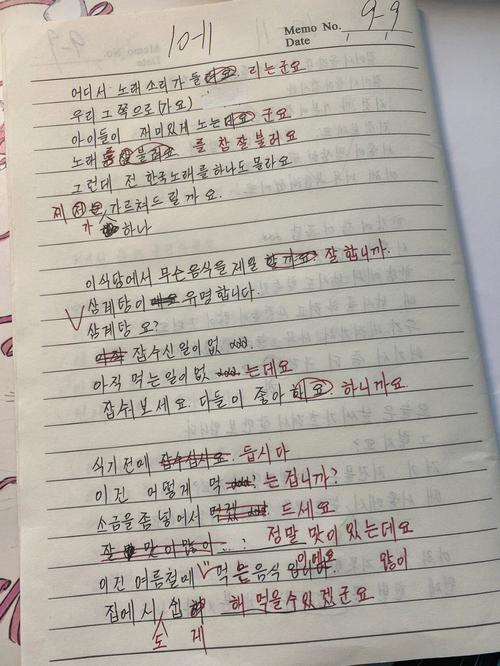 10-11
Memo No. 9-9
Date
어디서 노래 소리가 들려요. 리는군요
우리 그 쪽으로 (가요)
아이들이 재미있게 노는데요 군요
노래 를 참 잘 불러요
그런데 전 한국노래를 하나도 몰라요
제 가르쳐드릴까요.
가 하나
이식당에서 무슨음식을 제일 할까요? 잘 합니까.
삼계탕이 유명합니다.
삼계탕 요?
잡수신일이 없
아직 먹는일이 없 는데요
잡숴 보세요. 다들이 좋아 해요. 하니까요
식기전에 잡수십시요. 듭시다
이건 어떻게 먹 는겁니까?
소금을좀 넣어서 먹 드세요
잘 맛이많이...: 정말 맛이 있는데요
이건 여름철에 먹는음식 이에요 많이
집에서 쉽 해 먹을수있겠군요
도 게